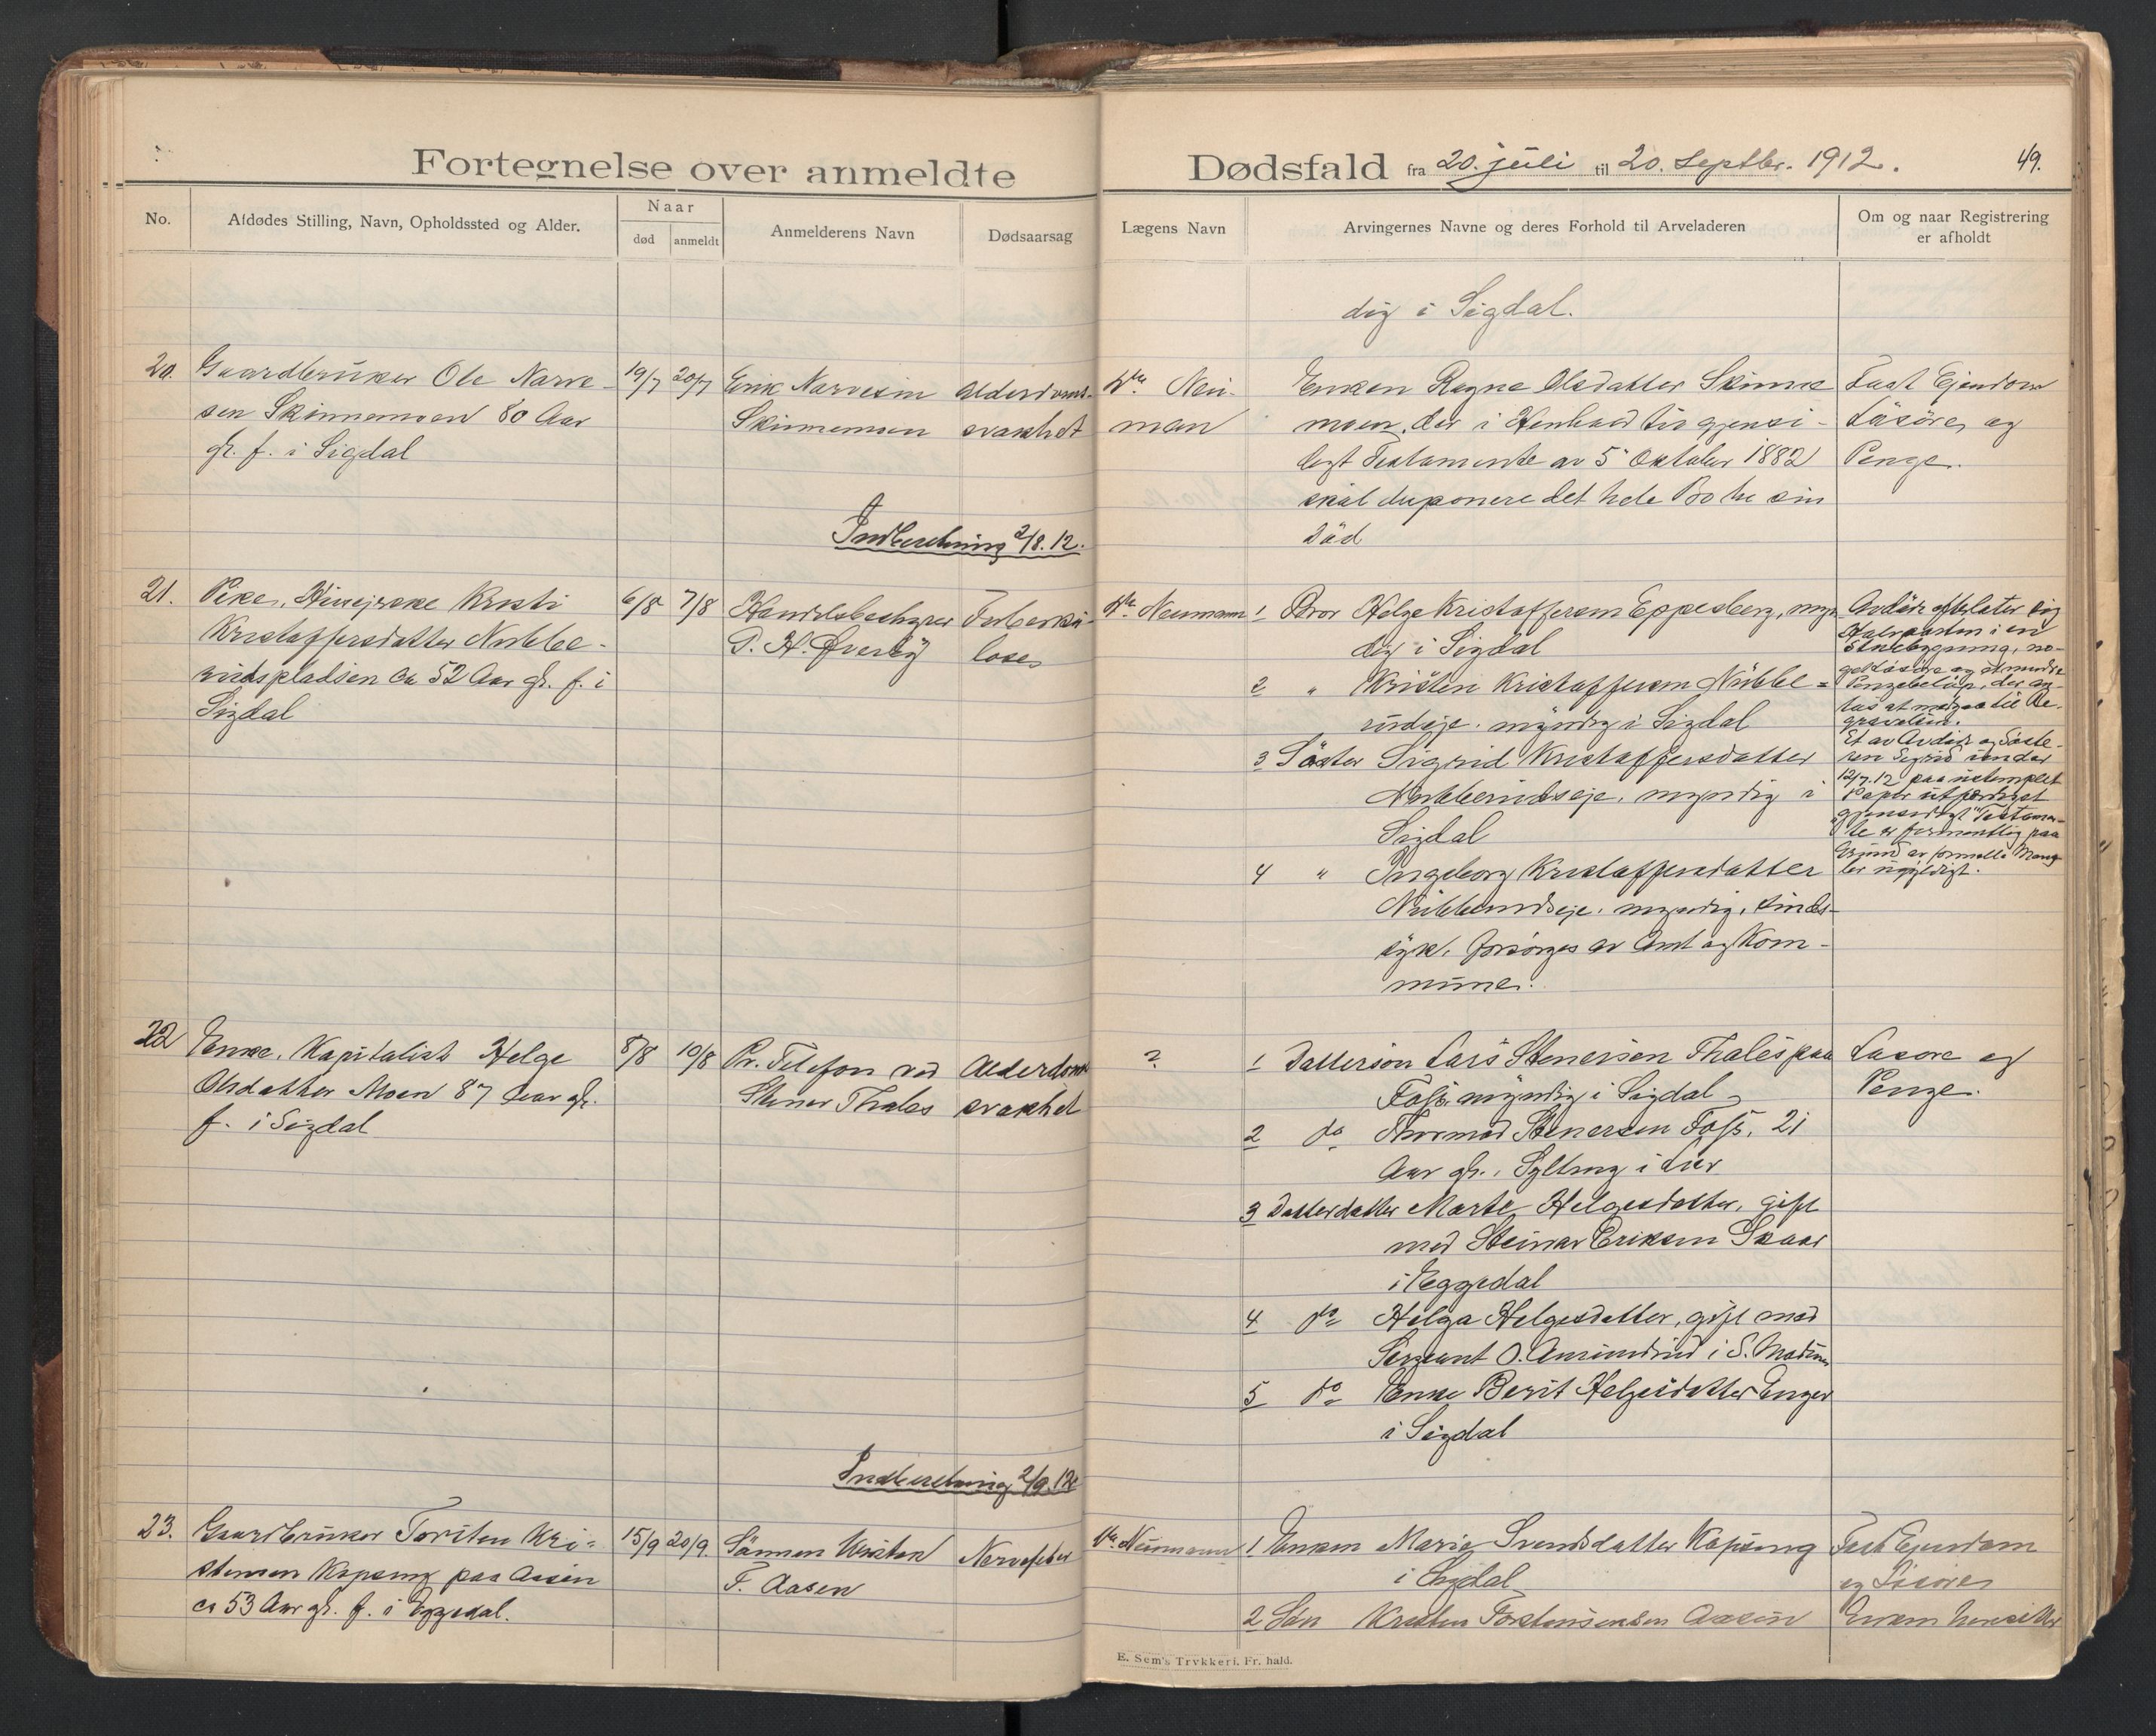 Fortegnelse over anmeldte
Dødsfald fra 20. juli til 20. Septbr. 1912. 49.
No.
Afdødes Stilling, Navn, Opholdssted og Alder.
Naar
død
anmeldt
Anmelderens Navn
Dødsaarsag
Lægens Navn
Arvingernes Navne og deres Forhold til Arveladeren
Om og naar Registrering
er afholdt
dig i Sigdal.
20.
Gaardbruker Ole Narve-
sen Skinnemoen 80 Aar
gl. f. i Sigdal
19/7
20/7
Erik Narvesen
Skinnemoen
Alderdoms-
svakhet
Dr. Neu-
man
Enken Ragne Olsdatter Skinne
moen, der i Henhold til gjensi-
digt Testamente av 5 Oktober 1882
skal disponere det hele Bo til sin
Död
Fast Ejendom
Lösöre og
Penge.
Indberetning 2/8.12.
21.
Pike, Kristi
Kristoffersdatter Nubbe-
rudspladsen ca 52 Aar gl. f. i
Sigdal
6/8
7/8
Handelsbestyrer
P. H. Øverby
Tuberku-
lose
Dr. Neumann
1 Bror Helge Kristoffersen Eppesberg, myn-
dig i Sigdal
2 " Kristen Kristoffersen Nubbe=
rudseje. myndig i Sigdal
3 Söster Sigrid Kristoffersdatter
Nubberudseje, myndig i
Sigdal
4 " Ingeborg Kristoffersdatter
Nubberudseje, myndig, sinds-
syk, forsörges av Amt og Kom-
mune.
Avdöde efterlater sig
Halvparten i en
Stuebygning, no-
get lösöre og et mindre
Pengebelöp, der an-
tas at medgaa til Be-
gravelsen.
Et av Avdöde og Söste-
ren Sigrid under
12/7.12 paa ustemplet
Papir utfærdiget
gjensidigt "Testamen-
te" er formentlig paa
Grund av formelle Mang-
ler ugyldigt.
22
Enke, Kapitalist Helge
Olsdatter Moen 87 Aar gl.
f. i Sigdal
8/8
10/8
Pr. Telefon ved
Stener Thales
Alderdoms
svakhet
?
1 Dattersön Lars Stenersen Thales paa
Foss, myndig i Sigdal
2 do Thormod Stenersen Foss, 21
Aar gl., Sylling i Lier
3 Datterdatter Marte Helgesdatter, gift
med Steinar Eriksen Skaar
i Eggedal
4 do Helga Helgesdatter, gift med
Sergeant O. Amundrud i S. Modum
5 do Enke Berit Helgesdatter Enger
i Sigdal
Lösöre og
Penge.
Indberetning 2/9.12
23.
Gaardbruker Torsten Kri=
stensen Kopseng paa Aasen
ca 53 Aar gl. f. i Eggedal.
15/9
20/9.
Sönnen Kristen
T. Aasen
Nervefeber
Dr. Neumann
1 Enken Marie Svendsdatter Kopseng
i Sigdal
2 Sön Kristen Torstensensen Aasen
Fast Ejendom
og Lösöre
Enken hensitter
E. Sem's Trykkeri. Fr. hald.